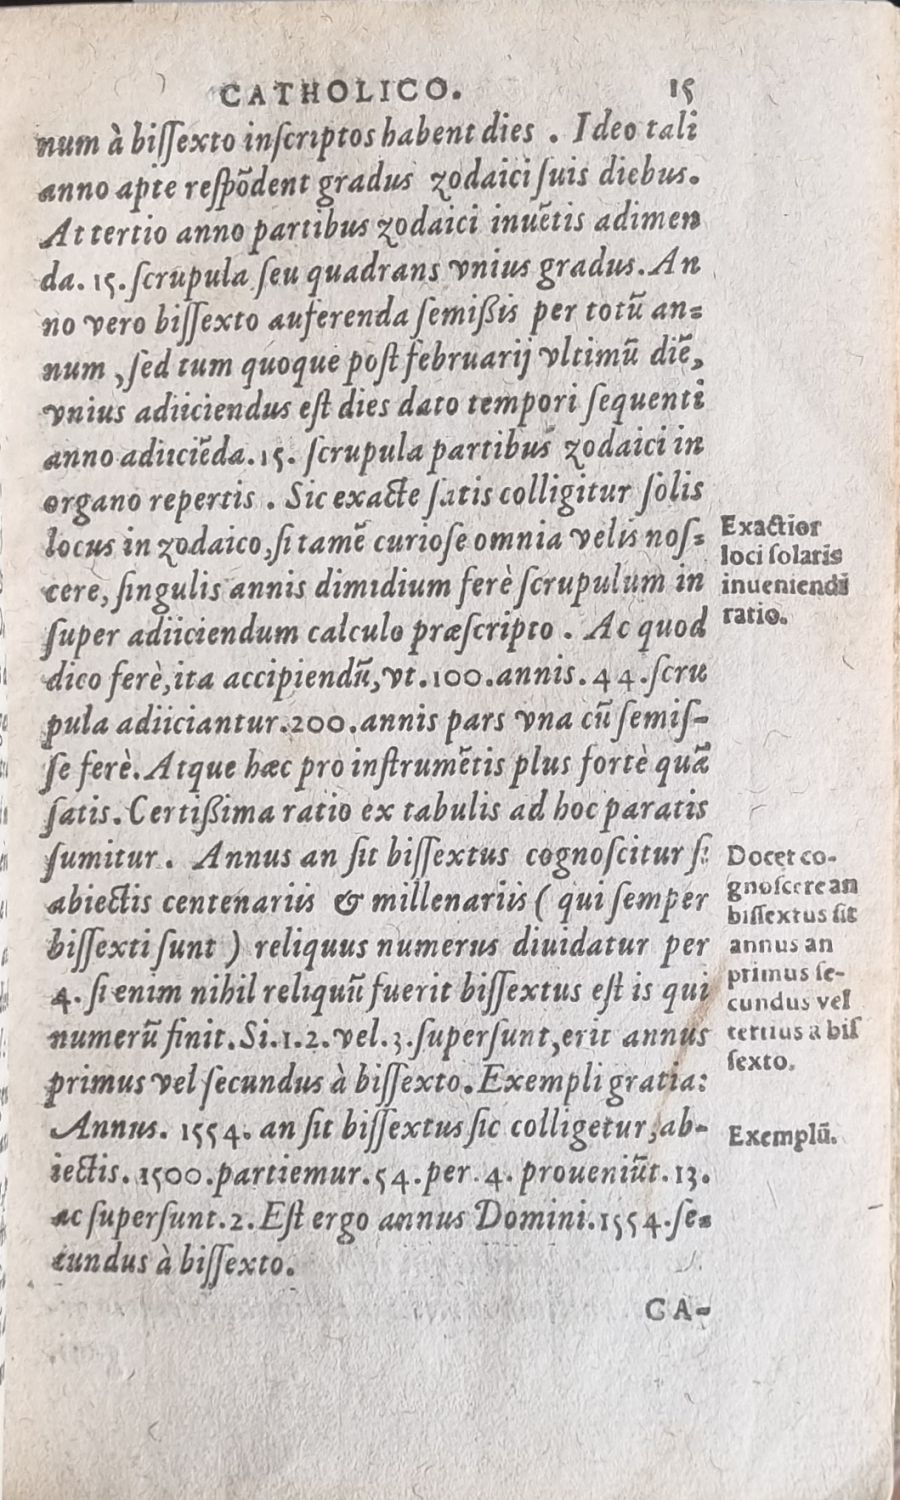 CATHOLICO. 15
num à biſſexto inſcriptos habent dies . Ideo tali
anno apte reſpõdent gradus zodaici ſuis diebus.
At tertio anno partibus zodaici inuẽtis adimen
da. 15. ſcrupula ſeu quadrans vnius gradus. An
no vero biſſexto auferenda ſemißis per totũ an=
num , ſed tum quoque poſt februarij vltimũ diẽ,
vnius adiiciendus eſt dies dato tempori ſequenti
anno adiiciẽda. 15. ſcrupula partibus zodaici in
organo repertis . Sic exacte ſatis colligitur ſolis
locus in zodaico, ſi tamẽ curioſe omnia velis noſ=
cere, ſingulis annis dimidium ferè ſcrupulum in
ſuper adiiciendum calculo præſcripto . Ac quod
dico ferè, ita accipiendũ, vt. 100. annis. 44. ſcru
pula adiiciantur. 200. annis pars vna cũ ſemiſ-
ſe ferè. Atque hæc pro inſtrumẽtis plus fortè quã
ſatis. Certißima ratio ex tabulis ad hoc paratis
ſumitur . Annus an ſit biſſextus cognoſcitur ſi
abiectis centenariis & millenariis ( qui ſemper
biſſexti ſunt ) reliquus numerus diuidatur per
4. ſi enim nihil reliquũ fuerit biſſextus eſt is qui
numerũ finit. Si. 1. 2. vel. 3. ſuperſunt, erit annus
primus vel ſecundus à biſſexto. Exempli gratia:
Annus. 1554. an ſit biſſextus ſic colligetur, ab-
iectis. 1500. partiemur. 54. per. 4. proueniũt. 13.
ac ſuperſunt. 2. Eſt ergo annus Domini. 1554. ſe=
cundus à biſſexto.
CA-
Exactior
loci ſolaris
inueniendi
ratio.
Docet co-
gnoſcere an
biſſextus ſit
annus an
primus ſe-
cundus vel
tertius a biſ
ſexto.
Exemplũ.